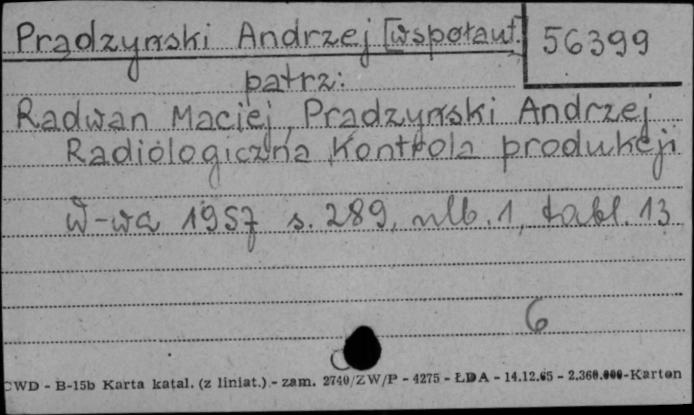 Prądzyński Andrzej [współaut.]
56399
patrz:
Radwan Maciej, Prądzyński Andrzej
Radiologiczna kontrola produkcji
W-wa 1957 s. 289, nlb. 1, tabl. 13
6
CWD - B-15b Karta katal. (z liniat.) - zam. 2740/ZW/P - 4275 - ŁDA - 14.12.65 - 2.360.000-Karton